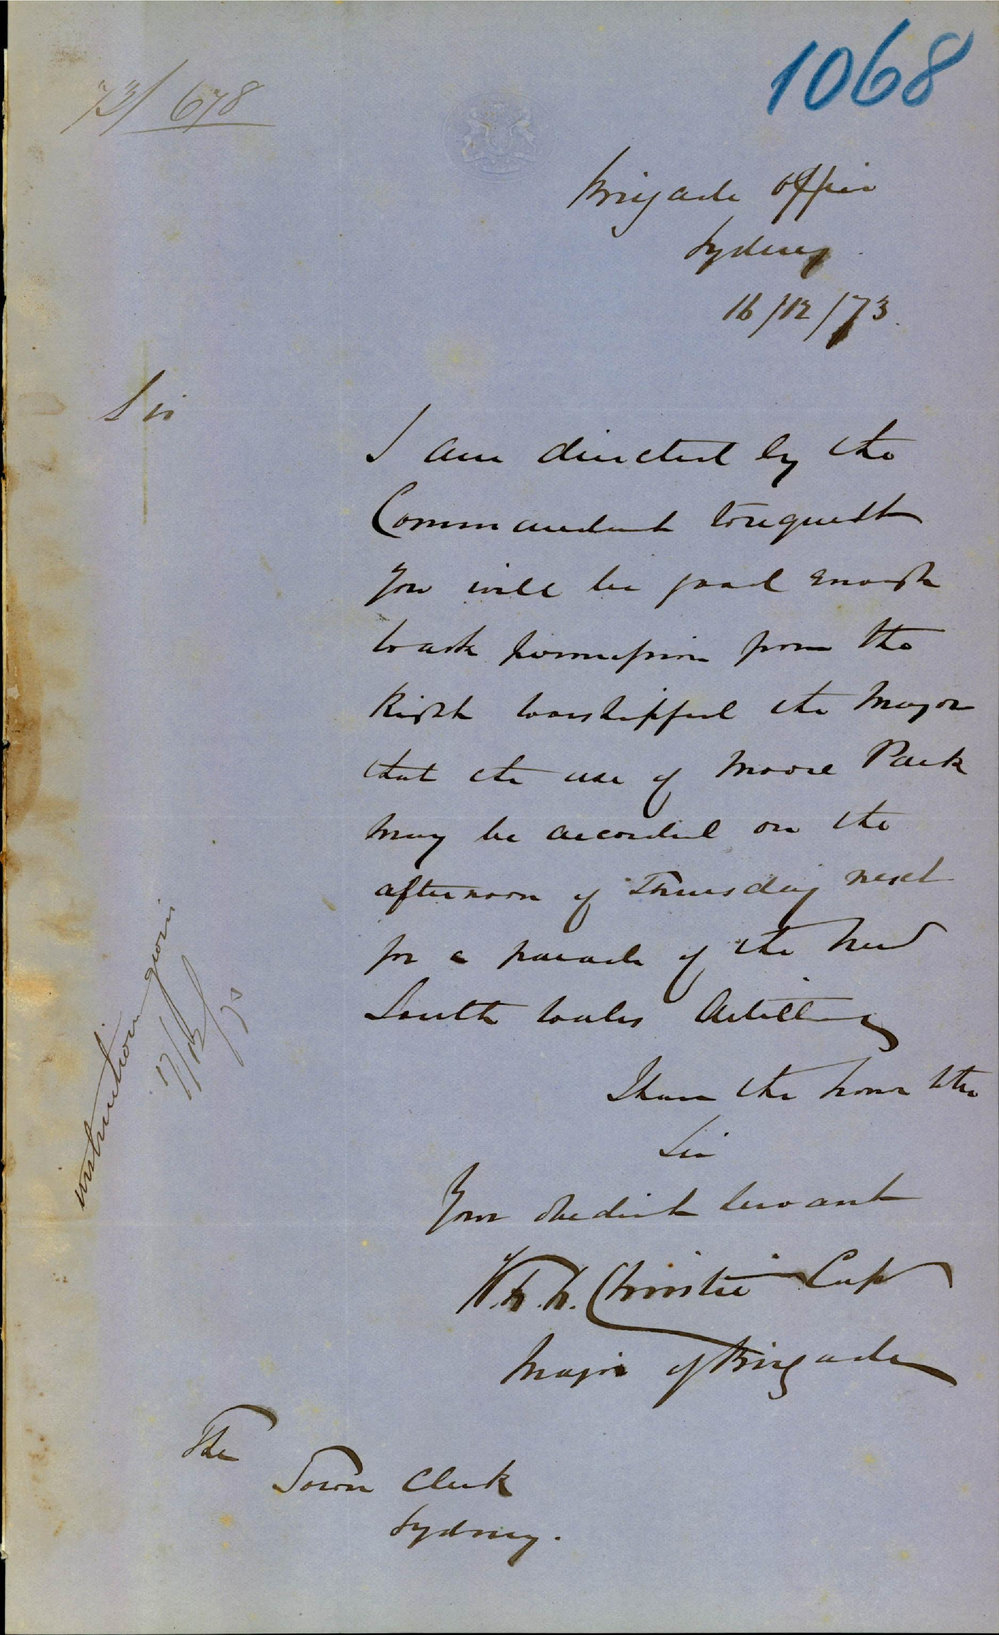 1068
73/678
Brigade Office
Sydney
16/12/73.
Sir
I am directed by the
Commandant to request
You will be good enough
to ask permission from the
Right Worshipful the Mayor
that the use of Moore Park
may be accorded on the
afternoon of Thursday next
for a parade of the New
South Wales Artillery
I have the honor to be
Sir
Your obedient Servant
Christie Capt
Major of Brigade
The
Town Clerk
Sydney.
instruction given
17/12/73